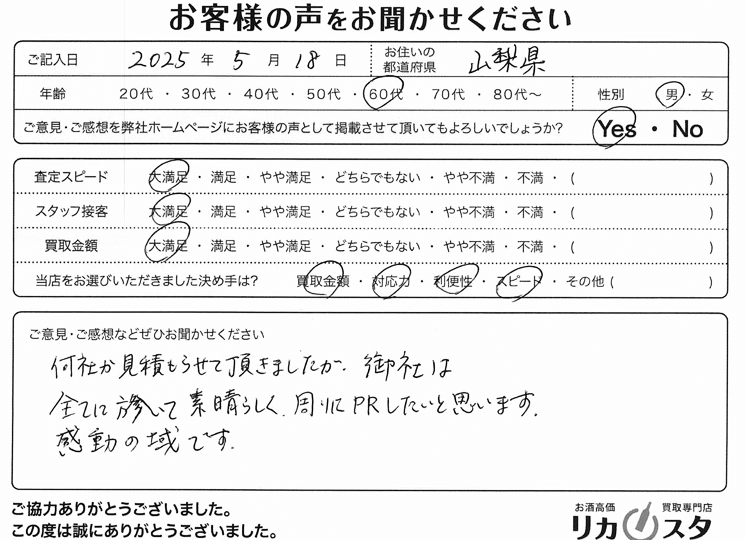 お客様の声をお聞かせください
ご記入日 2025 年 5 月 18 日 お住いの都道府県 山梨県
年齢 20代 ・ 30代 ・ 40代 ・ 50代 ・ 60代 ・ 70代 ・ 80代～ 性別 男 ・ 女
ご意見・ご感想を弊社ホームページにお客様の声として掲載させて頂いてもよろしいでしょうか? Yes ・ No
査定スピード 大満足 ・ 満足 ・ やや満足 ・ どちらでもない ・ やや不満 ・ 不満 ・ ( )
スタッフ接客 大満足 ・ 満足 ・ やや満足 ・ どちらでもない ・ やや不満 ・ 不満 ・ ( )
買取金額 大満足 ・ 満足 ・ やや満足 ・ どちらでもない ・ やや不満 ・ 不満 ・ ( )
当店をお選びいただきました決め手は? 買取金額 ・ 対応力 ・ 利便性 ・ スピード ・ その他 ( )
ご意見・ご感想などぜひお聞かせください
何社か見積もらせて頂きましたが、御社は
全てに於いて素晴らしく、周りにPRしたいと思います。
感動の域です。
ご協力ありがとうございました。
この度は誠にありがとうございました。
お酒高価 買取専門店
リカスタ